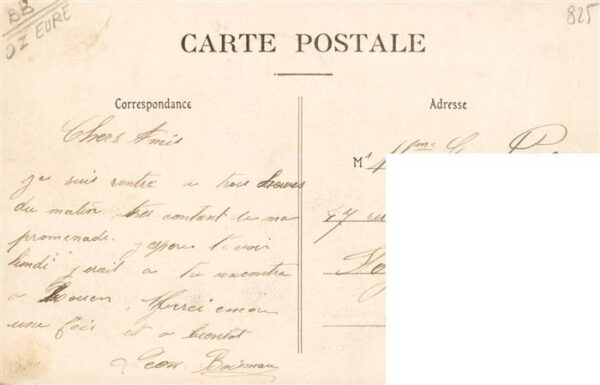 BB
OZ EURE
825
CARTE POSTALE
Correspondance
Adresse
Chers Amis
je suis rentré a trois heures
du matin, tres contant de ma
promenade. j'espere te voir
lundi j'erait a ta rencontre
a Rouen. Merci encore
une fois et a bientot
Leon
Mr
47 rue